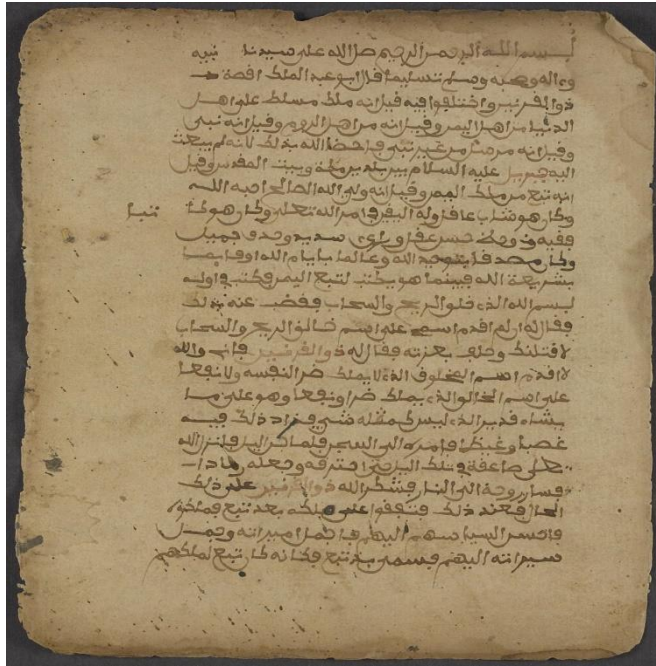 بسم الله الرحمن الرحيم صل الله على سيدنا نبيه
وءاله وصحبه وسلم تسليما قال ابو عبد الملك افصة
ذو القرنين واختلفوا فيه فيل انه ملك مسلط على اهل
الدنيا من اهل اليمن وفيل انه من اهل الروم وفيل انه نبي
وفيل انه مرسل من غير نبي الله بذلك لانه لم يبعث
اليه جبريل عليه السلام بين مكة وبيت المقدس وفيل
انه تبع من ملك اليمن وفيل انه ولي الله الصالح احبه الله
وكان هو شاب عافل وله اليفين امر الله تعلى وكان هو
حسن عفل شديد وجميل
وكان بتوحيد الله وعالما بايام الله
بشريعة الله فبينما هو يكتب لتبع اليمن فكتب اوله
بسم الله الذي خلق الريح والسحاب فغضب عنه تبع
ففال له ان لم افدم اسمي على اسم خالق الريح والسحاب
لافتلنك وحلف بعزته ففال له ذو القرنين فاني والله
لا افدم اسم المخلوف الذي لا يملك ضر النفسه ولا نفعا
على اسم الخالق الذي يملك ضرا ونفعا وهو على ما
يشاء فدير الذي ليس كمثله شيء فزاد ذلك فيه
غضبا وغيظا فامره الى السجن فلما كان اليل فانزل الله
على صاعفة تلك اليل حتى احترفه وجعله رمادا
فسار روحه الى النار فشكر الله ذو القرنين على ذلك
الحال فعند ذلك فتففوا على ملكه بعد تبع فملكوه
فاحسن اليهم اليهم
سيرته اليهم فسمي بذ تبع فكانه كان تبع لملكهم